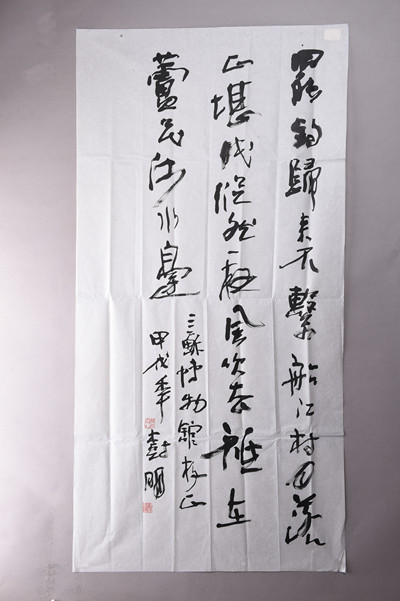 罷釣歸來不繫船江村月落
正堪眠縱然一夜風吹去在
蘆花淺水邊
三蘇博物館存正
甲戌年明